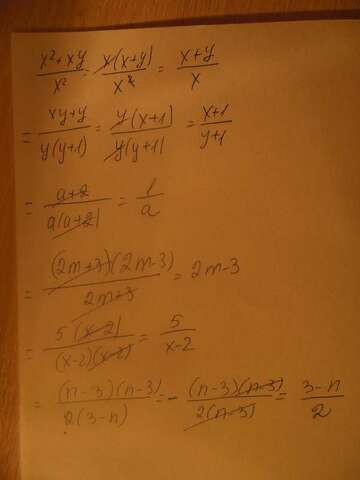 x²+xy/x² = x(x+y)/x² = x+y/x
= xy+y/y(y+1) = y(x+1)/y(y+1) = x+1/y+1
= a+2/a(a+2) = 1/a
= (2m+3)(2m-3)/2m+3 = 2m-3
= 5(x-2)/(x-2)(x-2) = 5/x-2
= (n-3)(n-3)/2(3-n) = - (n-3)(n-3)/2(n-3) = 3-n/2